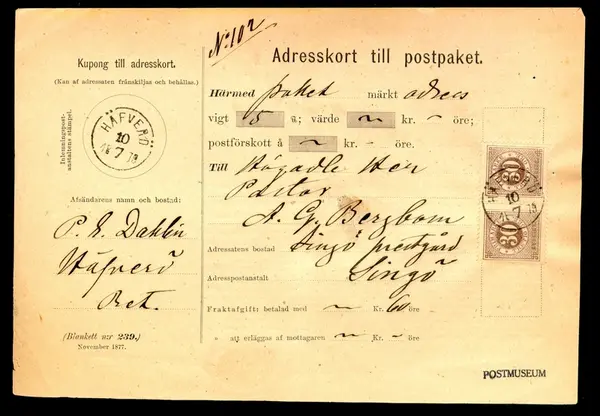 No 102
Kupong till adresskort.
(Kan af adressaten frånskiljas och behållas.)
Inlemningspost-
anstaltens stämpel.
HÄFVERÖ
10
18 7 79
Afsändarens namn och bostad:
P. E. Dahlin
Häfverö
Ret.
(Blankett n:r 239.)
November 1877.
Adresskort till postpaket.
Härmed paket märkt adress
vigt 5 ℔; värde ~ kr. - öre;
postförskott å ~ kr. - öre.
Till Högädle Herr
Pastor
A. G. Bergbom
Adressatens bostad Singö prestgård
Adresspostanstalt Singö
Fraktafgift: betalad med ~ Kr. 60 öre
" att erläggas af mottagaren ~ Kr. - öre
30
HÄFVERÖ
10
18 7 79
30
POSTMUSEUM